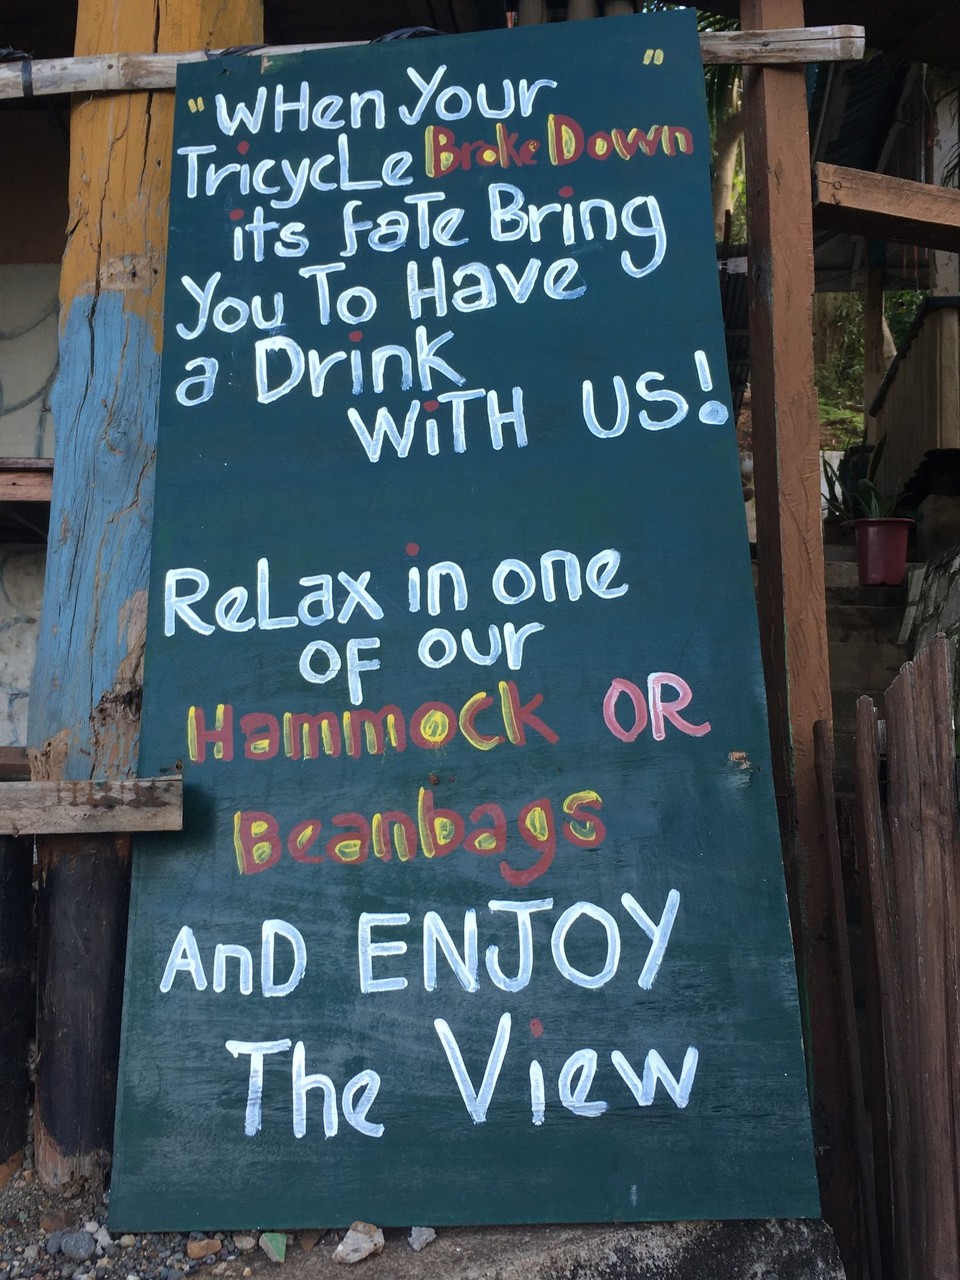 "When Your "
Tricycle Broke Down
its fate Bring
you To Have
a Drink
WiTH US!
ReLax in one
OF our
Hammock OR
Beanbags
AnD ENJOY
The View